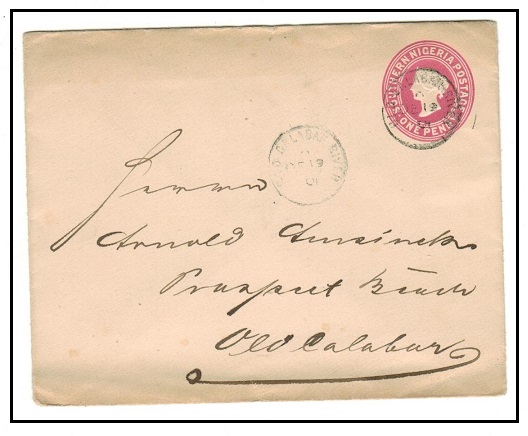 SOUTHERN NIGERIA POSTAGE
ONE PENNY
OLD CALABAR RIVER
19
01
Herrn
Arnold Amsinck
Prospect Beach
Old Calabar